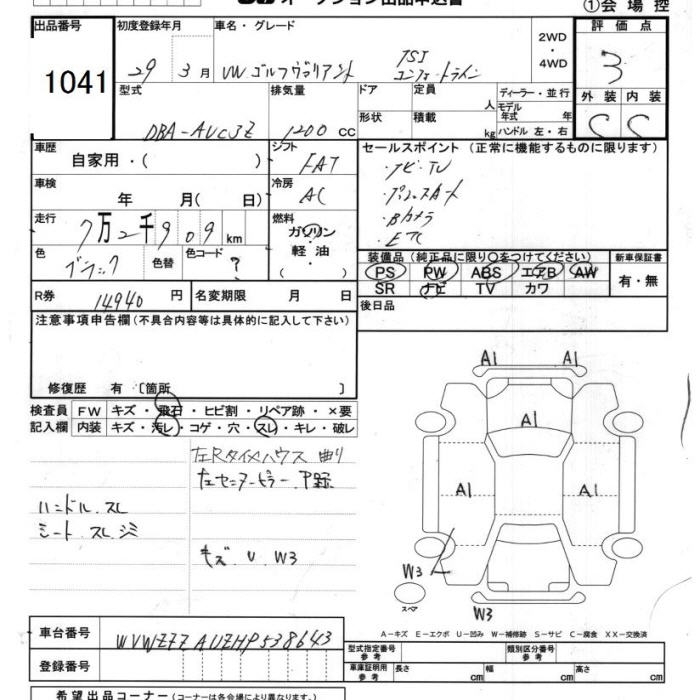 オークション出品申込書
①会場控
出品番号
1041
初度登録年月
29 3月
車名・グレード
VW ゴルフヴァリアント
TSI
コンフォートライン
2WD
・
4WD
評価点
3
外装 内装
C C
型式
DBA-AUCJZ
排気量
1200 CC
ドア
形状
定員
人
積載
kg
ディーラー・並行
モデル年式 年
ハンドル 左・右
車歴
自家用・( )
シフト
FAT
車検
年 月( 日)
冷房
AC
走行
7万2千909km
燃料
ガソリン
軽油
( )
色
ブラック
色替
色コード
?
R券
14940 円
名変期限 月 日
セールスポイント (正常に機能するものに限ります)
・ナビ・TV
・Bカメラ
・ETC
装備品 (純正品に限り〇をつけてください)
PS PW ABS エアB AW
SR ナビ TV カワ
新車保証書
有・無
後日品
注意事項申告欄(不具合内容等は具体的に記入して下さい)
修復歴 有〔箇所 〕
検査員 FW キズ・飛石・ヒビ割・リペア跡・×要
記入欄 内装 キズ・汚レ・コゲ・穴・スレ・キレ・破レ
左Rタイヤハウス 曲り
左センターピラー
ハンドル.スレ
シート.スレ.シミ
キズ.U W3
A1 A1
A1
A1 A1
W3
スペア
W3
A-キズ E-エクボ U-凹み W-補修跡 S-サビ C-腐食 XX-交換済
車台番号
WVWZZZAUZHP538643
登録番号
型式指定番号
参考
類別区分番号
参考
車庫証明用
参考
長さ cm 幅 cm 高さ cm
希望出品コーナー (コーナーは各会場により異なります。)